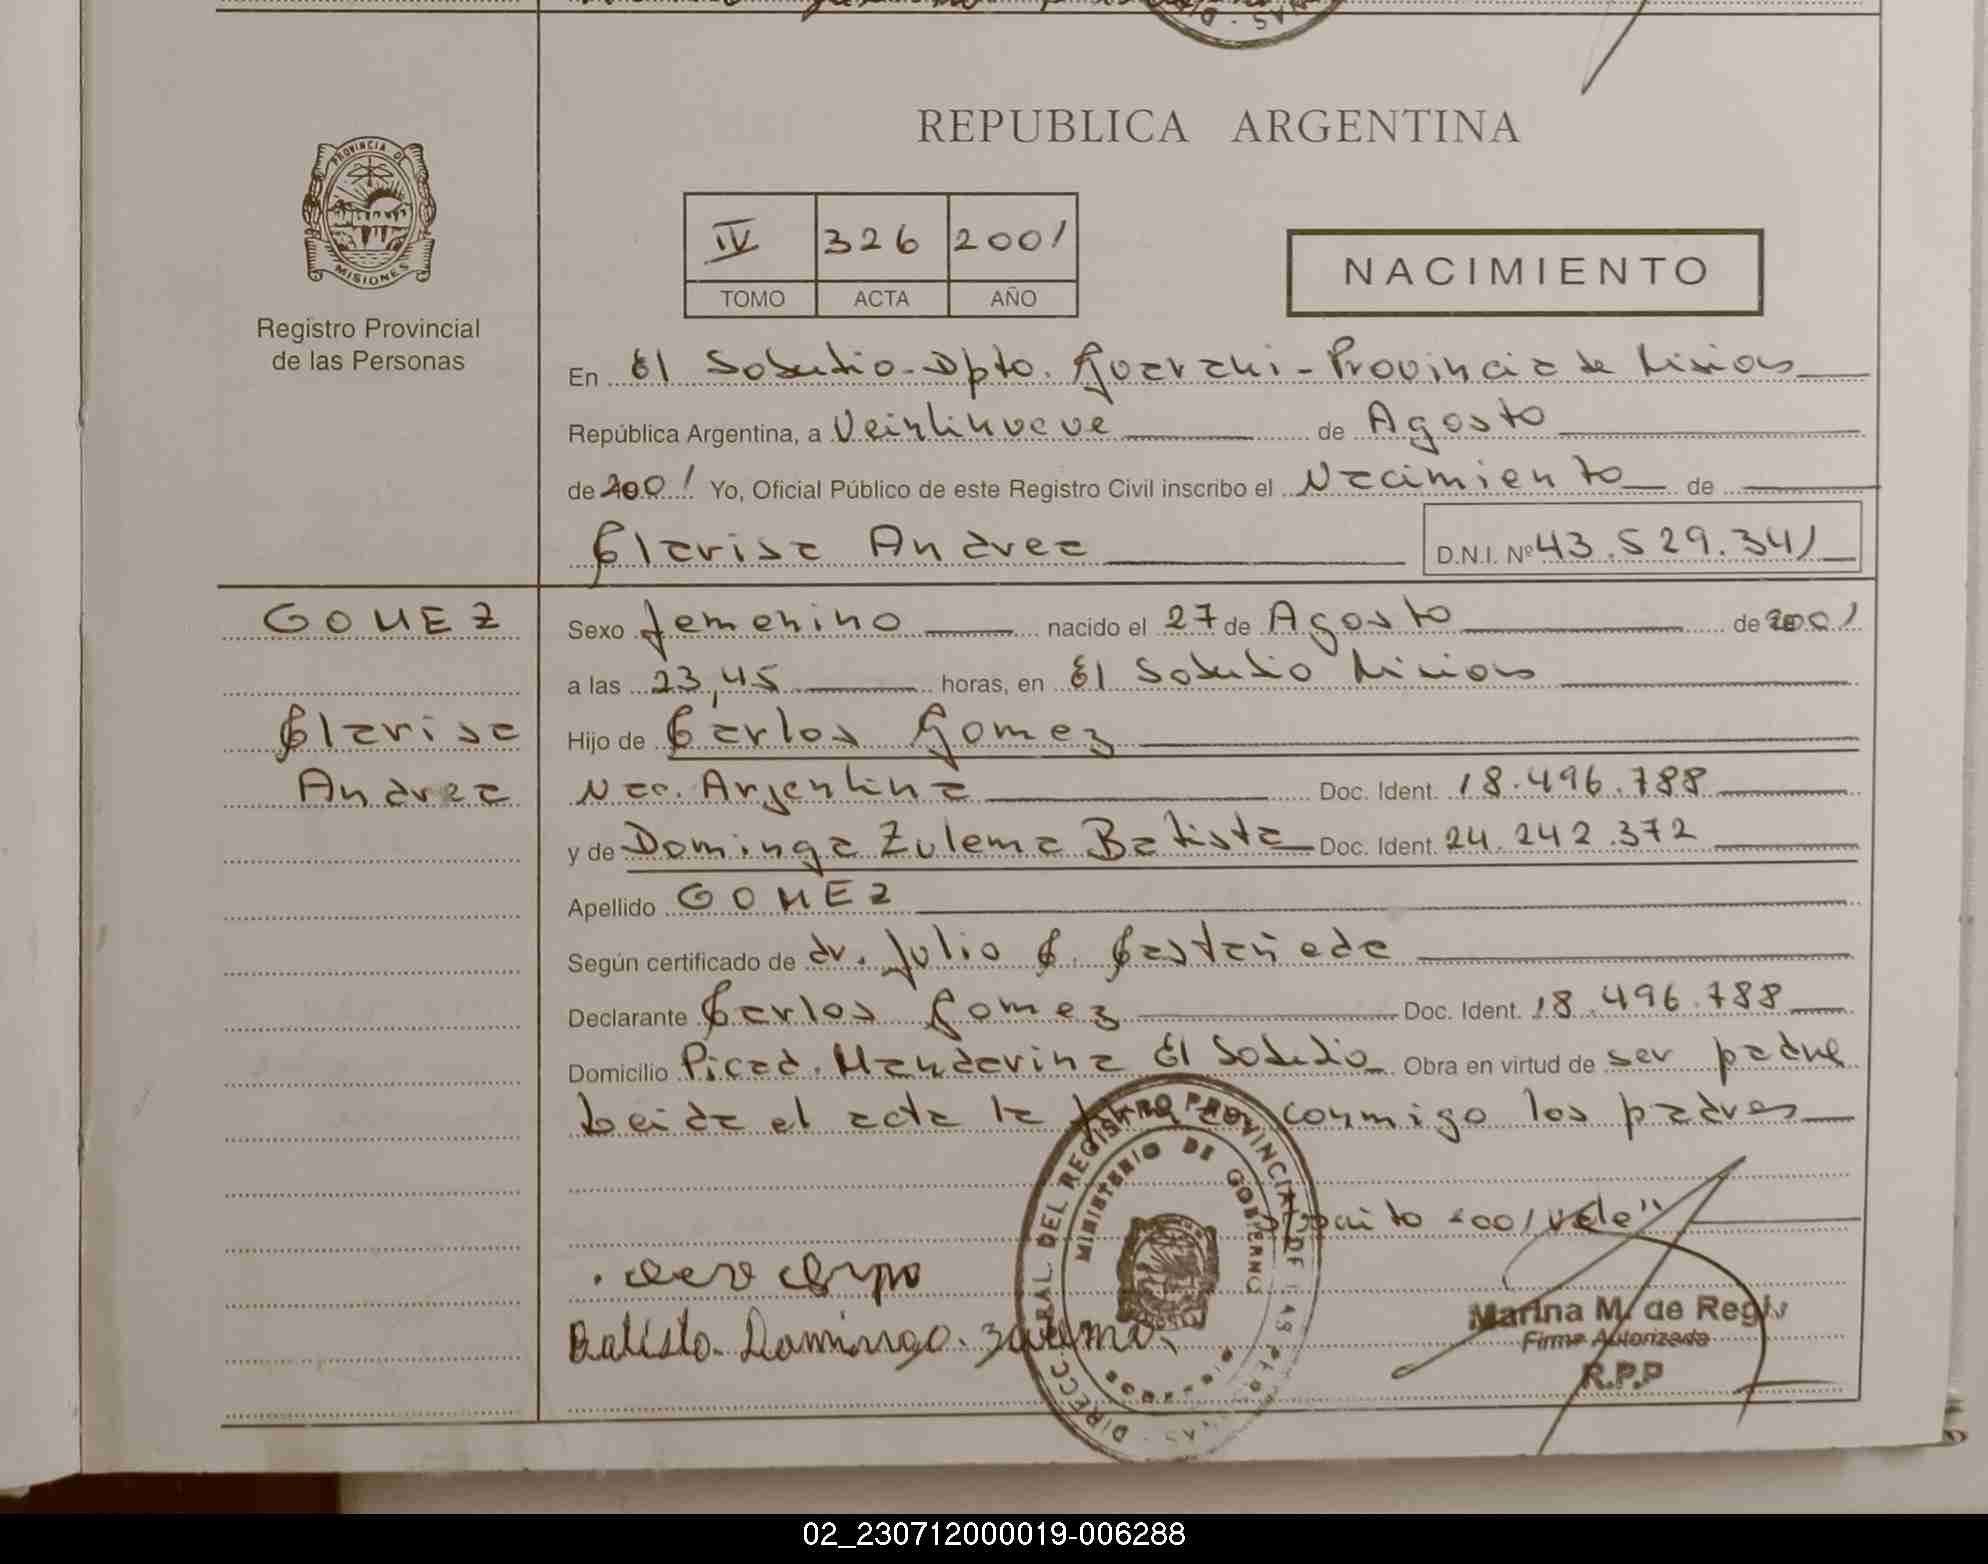 REPUBLICA ARGENTINA
PROVINCIA DE
MISIONES
Registro Provincial
de las Personas
IV 326 2001
TOMO ACTA AÑO
NACIMIENTO
En El Soberbio - Dpto. Guarani - Provincia de Misiones
República Argentina, a Veintinueve de Agosto
de 2001 Yo, Oficial Público de este Registro Civil inscribo el Nacimiento de
Clarisa Andrea D.N.I. Nº 43.529.341
GOMEZ
Clarisa
Andrea
Sexo femenino nacido el 27 de Agosto de 2001
a las 23,45 horas, en El Soberbio Misiones
Hijo de Carlos Gomez
Nac. Argentina Doc. Ident. 18.496.788
y de Dominga Zulema Batista Doc. Ident. 24.242.372
Apellido GOMEZ
Según certificado de dr. Julio C. Castañeda
Declarante Carlos Gomez Doc. Ident. 18.496.788
Domicilio Picad. Mandarina El Soberbio Obra en virtud de ser padre
Leida el acta la conmigo los padres
2001 vale"
Batista Dominga Zulema
DIRECC GRAL. DEL REGISTRO PROVINCIAL DE LAS PERSONAS
MINISTERIO DE GOBIERNO
MISIONES
Marina M. de Regiv
Firma Autorizada
R.P.P
02_230712000019-006288